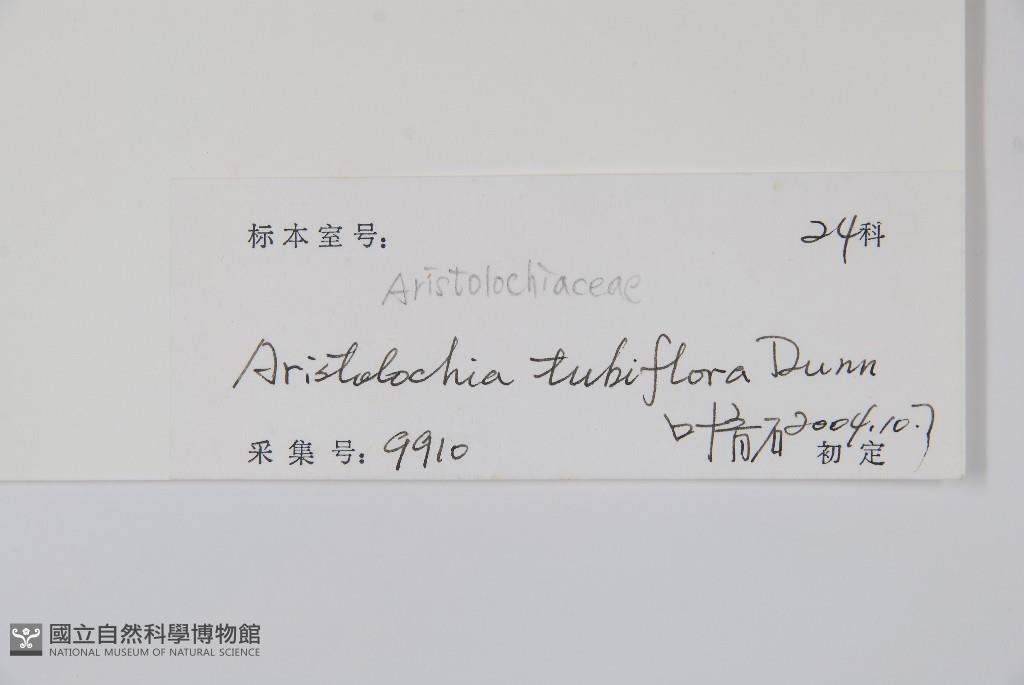 标本室号：
24科
Aristolochiaceae
Aristolochia tubiflora Dunn
采集号：9910
叶育石2004.10.7
初定
國立自然科學博物館
NATIONAL MUSEUM OF NATURAL SCIENCE